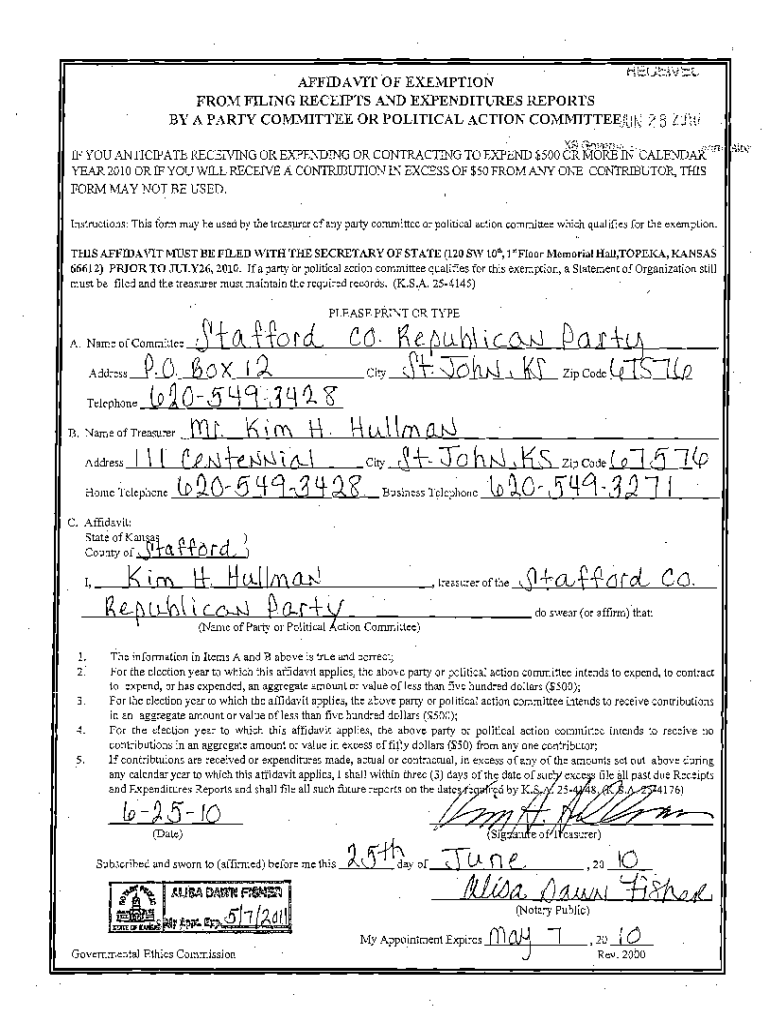 RECEIVED
AFFIDAVIT OF EXEMPTION
FROM FILING RECEIPTS AND EXPENDITURES REPORTS
BY A PARTY COMMITTEE OR POLITICAL ACTION COMMITTEE
IF YOU ANTICIPATE RECEIVING OR EXPENDING OR CONTRACTING TO EXPEND $500 OR MORE IN CALENDAR
YEAR 2010 OR IF YOU WILL RECEIVE A CONTRIBUTION IN EXCESS OF $50 FROM ANY ONE CONTRIBUTOR, THIS
FORM MAY NOT BE USED.
Instructions: This form may be used by the treasurer of any party committee or political action committee which qualifies for the exemption.
THIS AFFIDAVIT MUST BE FILED WITH THE SECRETARY OF STATE (120 SW 10th, 1st Floor Memorial Hall, TOPEKA, KANSAS
66612) PRIOR TO JULY 26, 2010. If a party or political action committee qualifies for this exemption, a Statement of Organization still
must be filed and the treasurer must maintain the required records. (K.S.A. 25-4145)
PLEASE PRINT OR TYPE
A. Name of Committee Stafford Co. Republican Party
Address P.O. Box 12 City St. John, KS Zip Code 67576
Telephone 620-549-3428
B. Name of Treasurer Mr. Kim H. Hullman
Address 111 Centennial City St. John, KS Zip Code 67576
Home Telephone 620-549-3428 Business Telephone 620-549-3271
C. Affidavit:
State of Kansas )
County of Stafford )
I, Kim H. Hullman, treasurer of the Stafford Co.
Republican Party do swear (or affirm) that:
(Name of Party or Political Action Committee)
1. The information in Items A and B above is true and correct;
2. For the election year to which this affidavit applies, the above party or political action committee intends to expend, to contract
to expend, or has expended, an aggregate amount or value of less than five hundred dollars ($500);
3. For the election year to which the affidavit applies, the above party or political action committee intends to receive contributions
in an aggregate amount or value of less than five hundred dollars ($500);
4. For the election year to which this affidavit applies, the above party or political action committee intends to receive no
contributions in an aggregate amount or value in excess of fifty dollars ($50) from any one contributor;
5. If contributions are received or expenditures made, actual or contractual, in excess of any of the amounts set out above during
any calendar year to which this affidavit applies, I shall within three (3) days of the date of such excess file all past due Receipts
and Expenditures Reports and shall file all such future reports on the dates required by K.S.A. 25-4148. (K.S.A. 25-4176)
6-25-10 Kim H. Hullman
(Date) (Signature of Treasurer)
Subscribed and sworn to (affirmed) before me this 25th day of June, 20 10
Alisa Dawn Fisher
(Notary Public)
NOTARY PUBLIC
STATE OF KANSAS
ALISA DAWN FISHER
My Appt. Exp. 5/7/2011
My Appointment Expires May 7, 20 10
Governmental Ethics Commission Rev. 2000